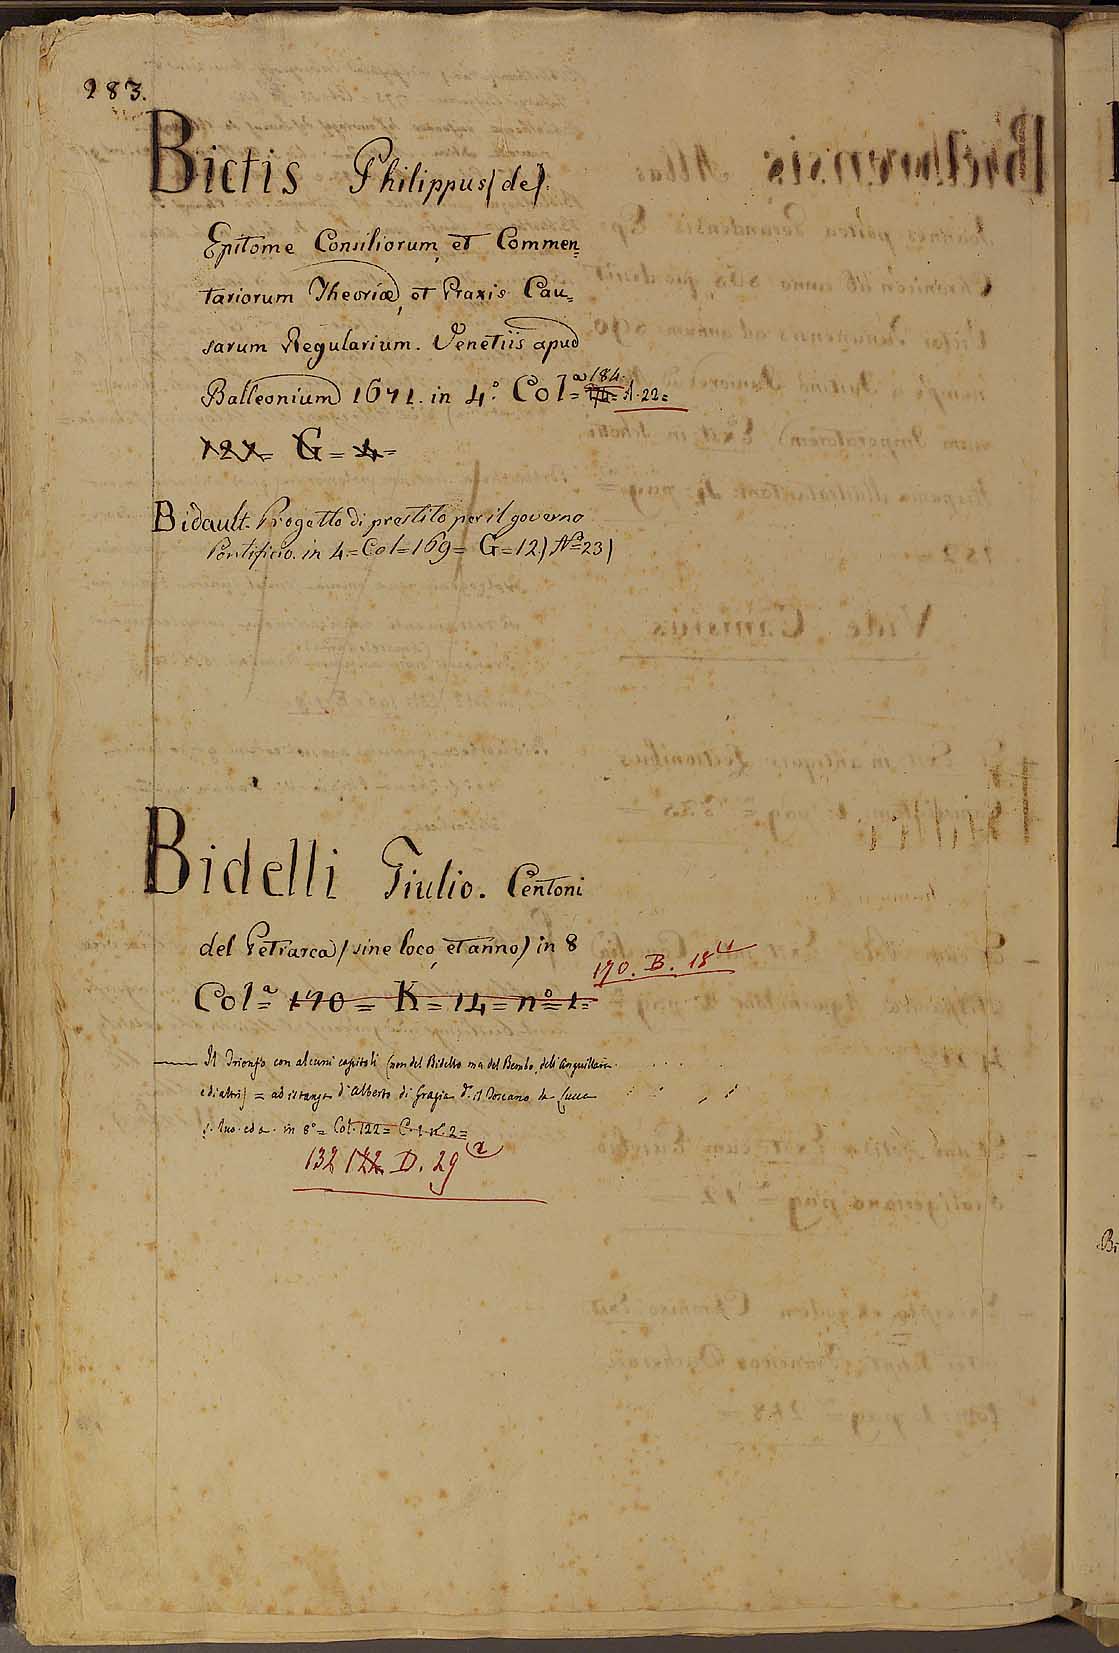 283.
Bictis Philippus (de).
Epitome Consiliorum, et Commen=
tariorum Theoriæ, et Praxis Cau=
sarum Regularium. Venetiis apud
Balleonium 1671. in 4.° Col=a 184. A. 22=
127= G= 4=
Bidault. Progetto di prestito per il governo
Pontificio. in 4= Col=169= G=12) N°=23)
Bidelli Giulio. Centoni
del Petrarca (sine loco, et anno) in 8
170. B. 18
Col=a 170= K= 14= n°= 1=
Il Trionfo con alcuni capitoli (non del Bidello ma del Bembo, dell'Anguillara
e di altri) = ad istanza d'Alberto di Grazia d.° il Toscano da Lucca
s. luo. ed a. in 8°= Col. 122= C. 1. n°. 2=
132 122 D. 29